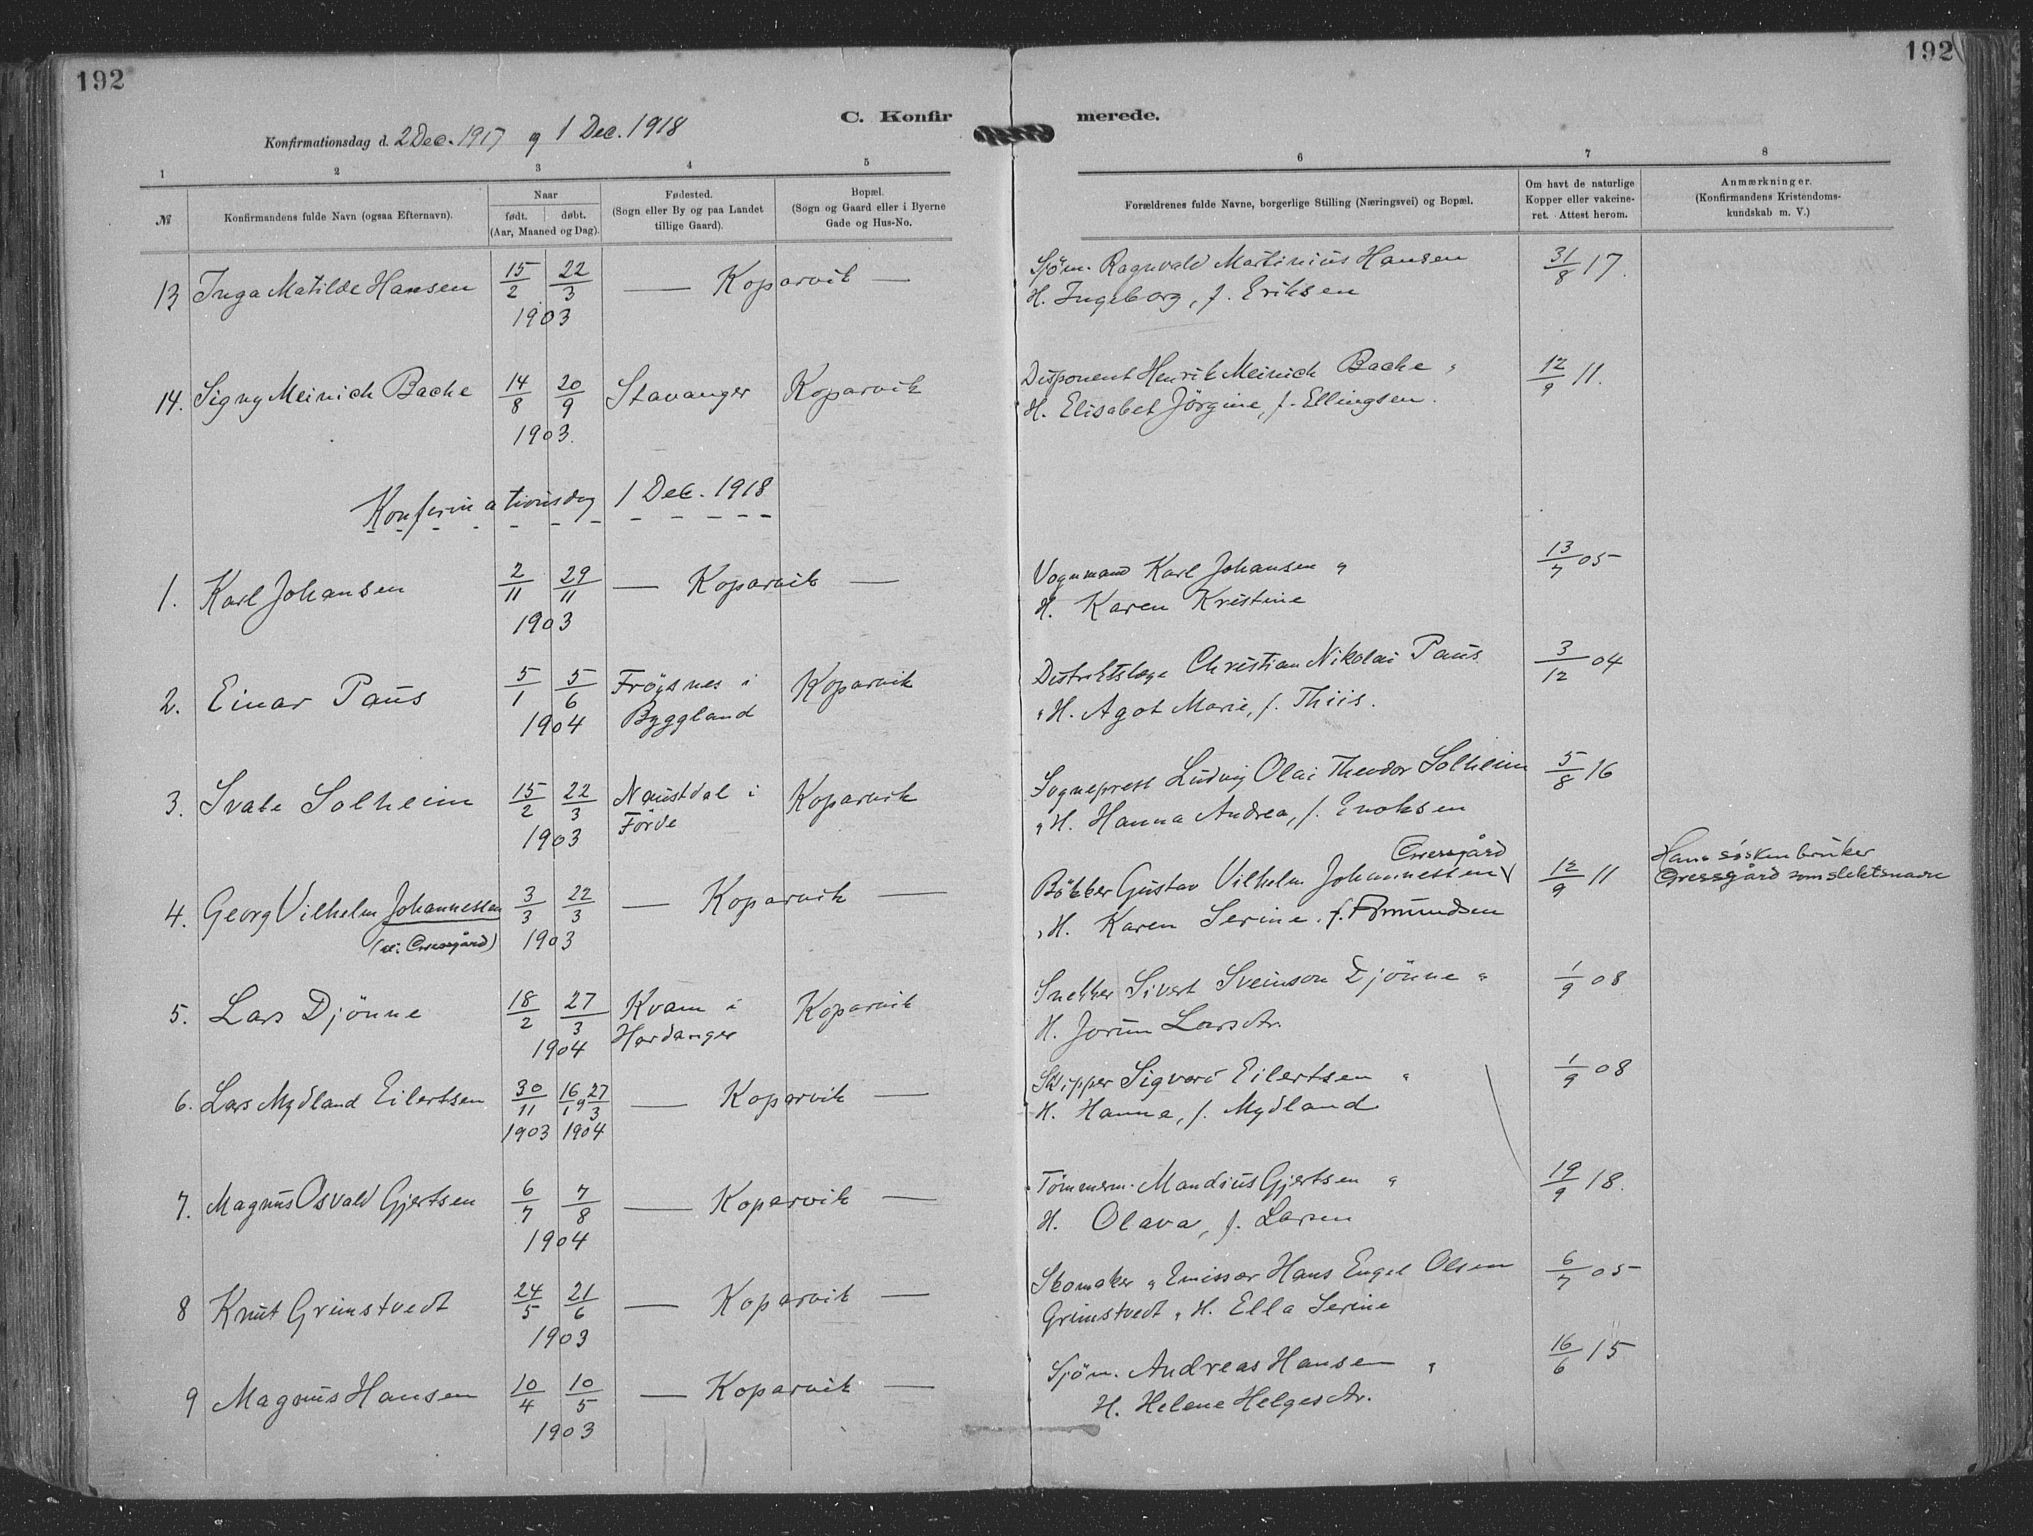 192
192
C. Konfirmerede.
Konfirmationsdag d. 2 Dec. 1917 og 1 Dec. 1918
1 2 3 4 5 6 7 8
№
Konfirmandens fulde Navn (ogsaa Efternavn).
Naar
født. døbt.
(Aar, Maaned og Dag).
Fødested.
(Sogn eller By og paa Landet
tillige Gaard).
Bopæl.
(Sogn og Gaard eller i Byerne
Gade og Hus-No.
Forældrenes fulde Navne, borgerlige Stilling (Næringsvei) og Bopæl.
Om havt de naturlige
Kopper eller vakcine-
ret. Attest herom.
Anmærkninger.
(Konfirmandens Kristendoms-
kundskab m. V.)
13 Inga Matilde Hansen 15/2 22/3 — Koparvik — Sjøm. Ragnvald Martinius Hansen 31/8 17.
1903 H. Ingeborg, f. Eriksen
14. Signy Meinich Bache 14/8 20/9 Stavanger Koparvik Disponent Henrik Meinich Bache " 12/9 11.
1903. H. Elisabet Jörgine, f. Ellingsen.
Konfirmationsdag 1 Dec. 1918
1. Karl Johansen 2/11 29/11 — Koparvik — Vognmand Karl Johansen " 13/7 05
1903 H. Karen Kristine
2. Einar Paus 5/1 5/6 Frøysnes i Koparvik Distriktslæge Christian Nikolai Paus 3/12 04
1904 Byggland " H. Agot Marie, f. Thiis.
3. Svale Solheim 15/2 22/3 Naustdal i Koparvik Sogneprest Ludvig Olai Theodor Solheim 5/8 16
1903 Förde " H. Hanna Andrea, f. Enoksen
Orresgård
4. Georg Vilhelm Johannessen 3/3 22/3 — Koparvik — Bökker Gustav Vilhelm Johannessen 12/9 11 Hans søsken bruker
Orresgård som slektsnavn
( Orresgård) 1903 " H. Karen Serine, f. Amundsen
5. Lars Djönne 18/2 27/3 Kvam i Koparvik Snekker Sivert Sveinson Djönne " 1/9 08
1904 Hardanger H. Jorun Larsdtr.
6. Lars Mydland Eilertsen 30/11 16/1 og 27/3 — Koparvik — Skipper Sigvard Eilertsen " 1/9 08
1903 1904 H. Hanna, f. Mydland
7. Magnus Osvald Gjertsen 6/7 7/8 — Koparvik — Tömmerm. Mandius Gjertsen " 19/9 18.
1904 H. Olava, f. Larsen
8 Knut Grimstvedt 24/5 21/6 — Koparvik — Skomaker " Emissær Hans Engel Olsen 6/7 05
1903 Grimstvedt " H. Ella Serine
9 Magnus Hansen 10/4 10/5 — Koparvik — Sjöm. Andreas Hansen " 16/6 15
1903 H. Helene Helgesdtr.